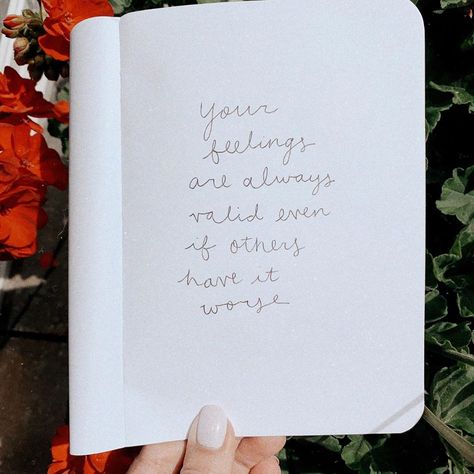 Your
feelings
are always
valid even
if others
have it
worse